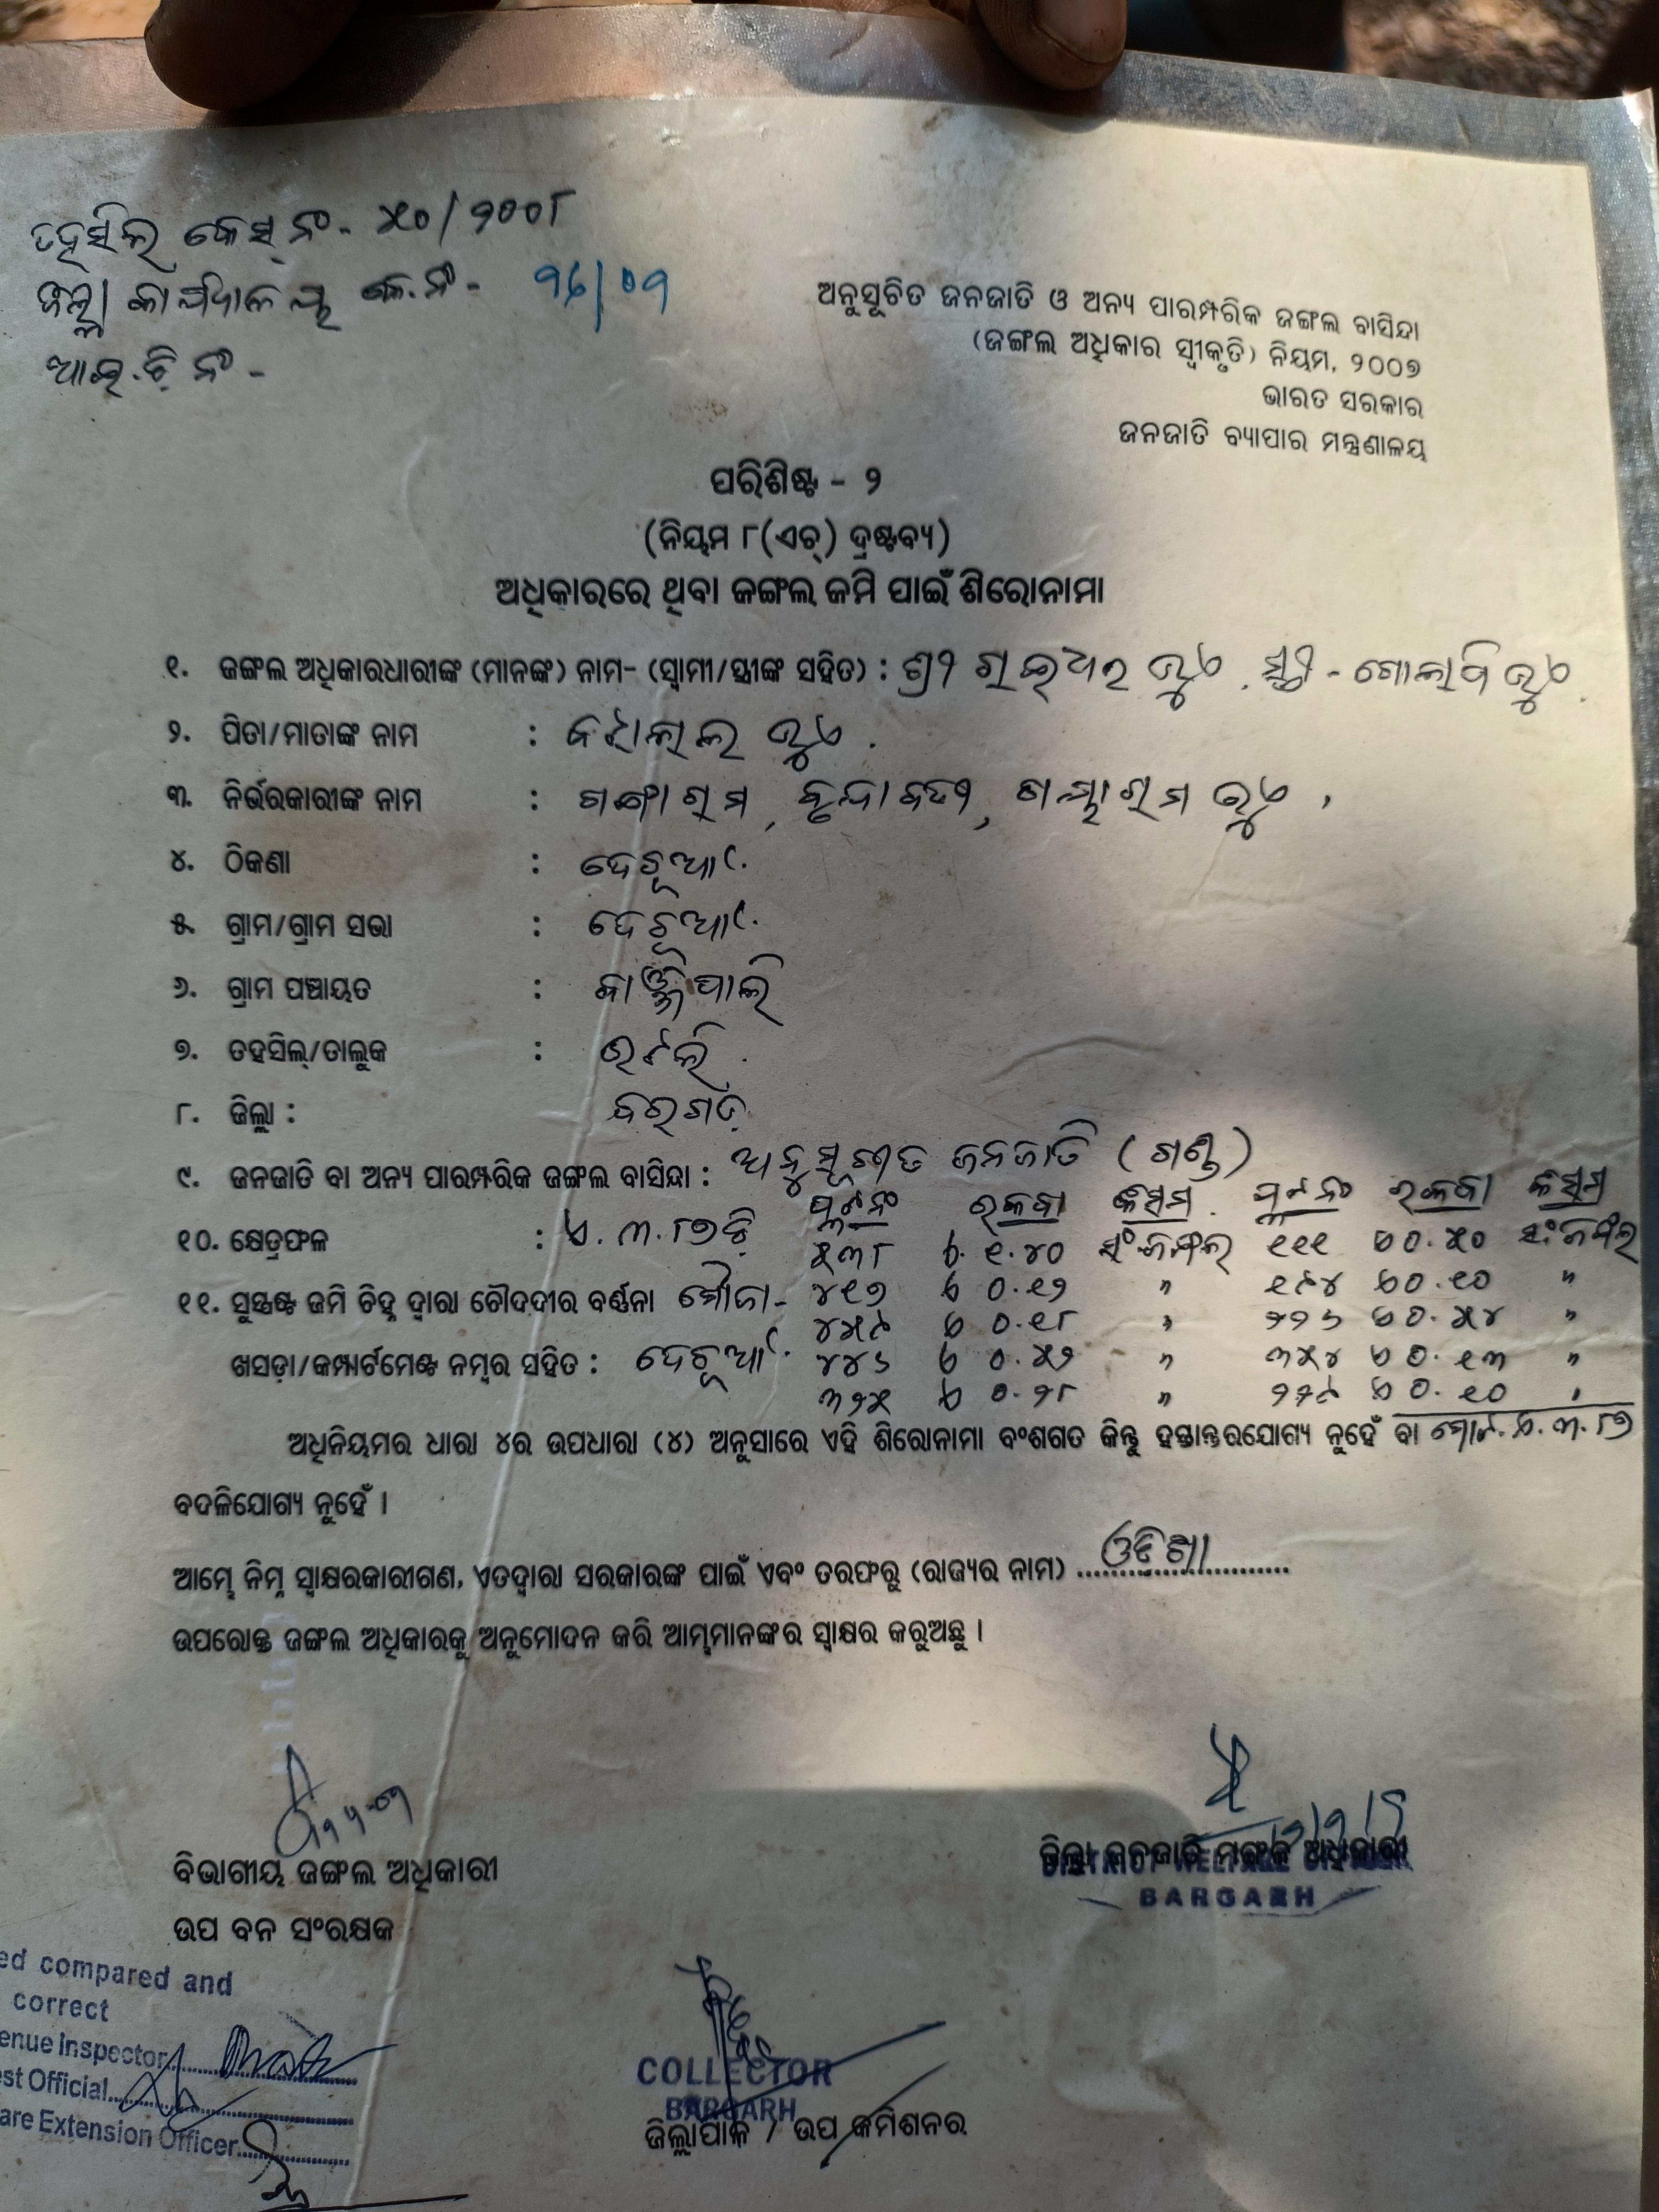 ତହସିଲ କେସ୍ ନଂ- ୪୦/୨୦୦୮
ଜିଲ୍ଲା କାର୍ଯ୍ୟାଳୟ କେ.ନଂ- ୨୬/୦୨
ଆଇ.ଡି ନଂ -
ଅନୁସୂଚିତ ଜନଜାତି ଓ ଅନ୍ୟ ପାରମ୍ପରିକ ଜଙ୍ଗଲ ବାସିନ୍ଦା
(ଜଙ୍ଗଲ ଅଧିକାର ସ୍ୱୀକୃତି) ନିୟମ, ୨୦୦୭
ଭାରତ ସରକାର
ଜନଜାତି ବ୍ୟାପାର ମନ୍ତ୍ରଣାଳୟ
ପରିଶିଷ୍ଟ - ୨
(ନିୟମ ୮(ଏଚ୍) ଦ୍ରଷ୍ଟବ୍ୟ)
ଅଧିକାରରେ ଥିବା ଜଙ୍ଗଲ ଜମି ପାଇଁ ଶିରୋନାମା
୧. ଜଙ୍ଗଲ ଅଧିକାରଧାରୀଙ୍କ (ମାନଙ୍କ) ନାମ- (ସ୍ୱାମୀ/ସ୍ତ୍ରୀଙ୍କ ସହିତ) : ଶ୍ରୀ
୨. ପିତା/ମାତାଙ୍କ ନାମ :
୩. ନିର୍ଭରକାରୀଙ୍କ ନାମ : ଗଙ୍ଗାରାମ, ବୃନ୍ଦାବତୀ,
୪. ଠିକଣା : ଦେଚୂଆଁ
୫. ଗ୍ରାମ/ଗ୍ରାମ ସଭା : ଦେଚୂଆଁ
୬. ଗ୍ରାମ ପଞ୍ଚାୟତ :
୭. ତହସିଲ୍/ତାଲୁକ : ଭଟଲି
୮. ଜିଲ୍ଲା : ବରଗଡ଼
୯. ଜନଜାତି ବା ଅନ୍ୟ ପାରମ୍ପରିକ ଜଙ୍ଗଲ ବାସିନ୍ଦା : ଅନୁସୂଚୀତ ଜନଜାତି (ଗଣ୍ଡ)
ପ୍ଲଟନଂ ରକବା କିସମ ପ୍ଲଟନଂ ରକବା କିସମ
୧୦. କ୍ଷେତ୍ରଫଳ : ଏ.୩.୮୭ଡି ୫୩୮ ଏ.୧.୪୦ ସଂ.ଜଙ୍ଗଲ ୧୧୧ ଏ୦.୫୦ ସଂ.ଜଙ୍ଗଲ
୧୧. ସୁସ୍ପଷ୍ଟ ଜମି ଚିହ୍ନ ଦ୍ୱାରା ଚୌଦଦୀର ବର୍ଣ୍ଣନା ମୌଜା- ୪୧୭ ଏ ୦.୧୨ " ୧୯୪ ଏ୦.୧୦ "
୪୫୯ ଏ ୦.୧୮ " ୨୨୬ ଏ୦.୫୪ "
ଖସଡ଼ା/କମ୍ପାର୍ଟମେଣ୍ଟ ନମ୍ବର ସହିତ : ଦେଚୂଆଁ ୪୪୬ ଏ ୦.୫୨ " ୩୫୪ ଏ ୦.୧୩ "
୩୨୫ ଏ ୦.୨୮ " ୨୨୯ ଏ ୦.୧୦ "
ଅଧିନିୟମର ଧାରା ୪ର ଉପଧାରା (୪) ଅନୁସାରେ ଏହି ଶିରୋନାମା ବଂଶଗତ କିନ୍ତୁ ହସ୍ତାନ୍ତରଯୋଗ୍ୟ ନୁହେଁ ବା ମୋଟ-ଏ.୩.୮୭
ବଦଳିଯୋଗ୍ୟ ନୁହେଁ ।
ଆମ୍ଭେ ନିମ୍ନ ସ୍ୱାକ୍ଷରକାରୀଗଣ, ଏତଦ୍ୱାରା ସରକାରଙ୍କ ପାଇଁ ଏବଂ ତରଫରୁ (ରାଜ୍ୟର ନାମ) ଓଡିଶା
ଉପରୋକ୍ତ ଜଙ୍ଗଲ ଅଧିକାରକୁ ଅନୁମୋଦନ କରି ଆମ୍ଭମାନଙ୍କର ସ୍ୱାକ୍ଷର କରୁଅଛୁ ।
ବିଭାଗୀୟ ଜଙ୍ଗଲ ଅଧିକାରୀ
ଉପ ବନ ସଂରକ୍ଷକ
ଜିଲ୍ଲା ଜନଜାତି ମଙ୍ଗଳ ଅଧିକାରୀ
DISTRICT WELFARE OFFICER
BARGARH
ed compared and
correct
enue Inspector
st Official
are Extension Officer
COLLECTOR
BARGARH
ଜିଲ୍ଲାପାଳ / ଉପ କମିଶନର